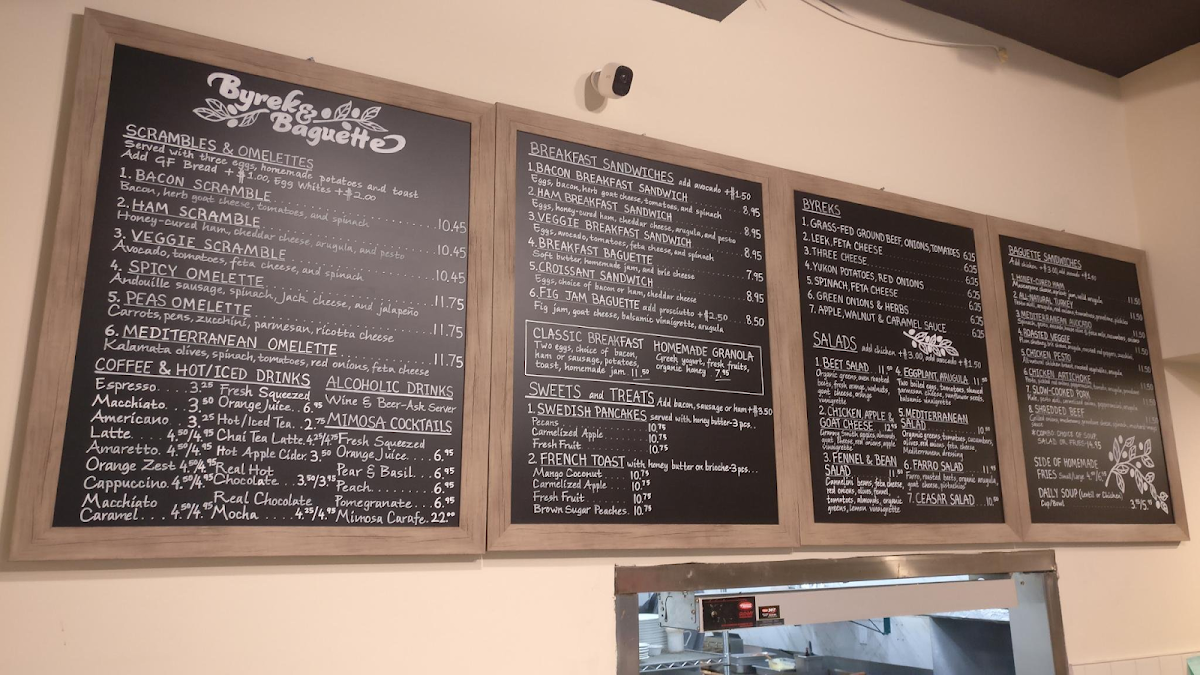 Byrek &
Baguette
SCRAMBLES & OMELETTES
Served with three eggs, homemade potatoes and toast
Add GF Bread +$1.00, Egg Whites +$2.00
1. BACON SCRAMBLE
Bacon, herb goat cheese, tomatoes, and spinach 10.45
2. HAM SCRAMBLE
Honey-cured ham, cheddar cheese, arugula, and pesto 10.45
3. VEGGIE SCRAMBLE
Avocado, tomatoes, feta cheese, and spinach 10.45
4. SPICY OMELETTE
Andouille sausage, spinach, Jack cheese, and jalapeño 11.75
5. PEAS OMELETTE
Carrots, peas, zucchini, parmesan, ricotta cheese 11.75
6. MEDITERRANEAN OMELETTE
Kalamata olives, spinach, tomatoes, red onions, feta cheese 11.75
COFFEE & HOT/ICED DRINKS
Espresso.... 3.25
Macchiato. 3.50
Americano. 3.25
Latte 4.50/4.95
Amaretto. 4.50/4.95
Orange Zest 4.50/4.95
Cappuccino. 4.50/4.95
Macchiato
Caramel.... 4.50/4.95
Fresh Squeezed
Orange Juice.. 6.95
Hot/Iced Tea. 2.75
Chai Tea Latte. 4.25/4.75
Hot Apple Cider. 3.50
Real Hot
Chocolate... 3.50/3.95
Real Chocolate
Mocha.... 4.25/4.95
ALCOHOLIC DRINKS
Wine & Beer-Ask Server
MIMOSA COCKTAILS
Fresh Squeezed
Orange Juice.... 6.95
Pear & Basil... 6.95
Peach....... 6.95
Pomegranate. 6.95
Mimosa Carafe. 22.00
BREAKFAST SANDWICHES add avocado +$1.50
1. BACON BREAKFAST SANDWICH
Eggs, bacon, herb goat cheese, tomatoes, and spinach 8.95
2. HAM BREAKFAST SANDWICH
Eggs, honey-cured ham, cheddar cheese, arugula, and pesto 8.95
3. VEGGIE BREAKFAST SANDWICH
Eggs, avocado, tomatoes, feta cheese, and spinach 8.95
4. BREAKFAST BAGUETTE
Soft butter, homemade jam, and brie cheese 7.95
5. CROISSANT SANDWICH
Eggs, choice of bacon or ham, cheddar cheese 8.95
6. FIG JAM BAGUETTE add prosciutto +$2.50
Fig jam, goat cheese, balsamic vinaigrette, arugula 8.50
CLASSIC BREAKFAST
Two eggs, choice of bacon,
ham or sausage, potatoes,
toast, homemade jam. 11.50
HOMEMADE GRANOLA
Greek yogurt, fresh fruits,
organic honey. 7.95
SWEETS and TREATS Add bacon, sausage or ham +$3.50
1. SWEDISH PANCAKES served with honey butter-3 pcs...
Pecans 10.75
Carmelized Apple 10.75
Fresh Fruit 10.75
2. FRENCH TOAST with honey butter on brioche-3 pcs...
Mango Coconut 10.75
Carmelized Apple 10.75
Fresh Fruit 10.75
Brown Sugar Peaches. 10.75
BYREKS
1. GRASS-FED GROUND BEEF, ONIONS, TOMATOES 6.25
2. LEEK, FETA CHEESE 6.25
3. THREE CHEESE 6.25
4. YUKON POTATOES, RED ONIONS 6.25
5. SPINACH, FETA CHEESE 6.25
6. GREEN ONIONS & HERBS 6.25
7. APPLE, WALNUT & CARAMEL SAUCE 6.25
SALADS add chicken +$3.00, add avocado +$1.50
1. BEET SALAD
Organic greens, oven roasted
beets, fresh orange, walnuts,
goat cheese, orange
vinaigrette
2. CHICKEN, APPLE &
GOAT CHEESE
3. FENNEL & BEAN
SALAD
Cannelini beans, feta cheese,
red onions, olives, fennel,
tomatoes, almonds, organic
greens, lemon vinaigrette
4. EGGPLANT, ARUGULA
5. MEDITERRANEAN
SALAD
Organic greens, tomatoes, cucumbers,
Mediterranean dressing
6. FARRO SALAD
Farro, roasted beets, organic arugula,
goat cheese, pistachios
7. CEASAR SALAD
BAGUETTE SANDWICHES
Add chicken +$3.00, add avocado +$1.50
1. HONEY-CURED HAM 11.50
2. ALL-NATURAL TURKEY 11.50
3. MEDITERRANEAN AVOCADO
4. ROASTED VEGGIE
5. CHICKEN PESTO
6. CHICKEN ARTICHOKE
7. SLOW-COOKED PORK
8. SHREDDED BEEF
*COMBO CHOICE OF SOUP,
SALAD OR FRIES
SIDE OF HOMEMADE
FRIES Small/Large
DAILY SOUP (Lentil or Chicken)
Cup/Bowl